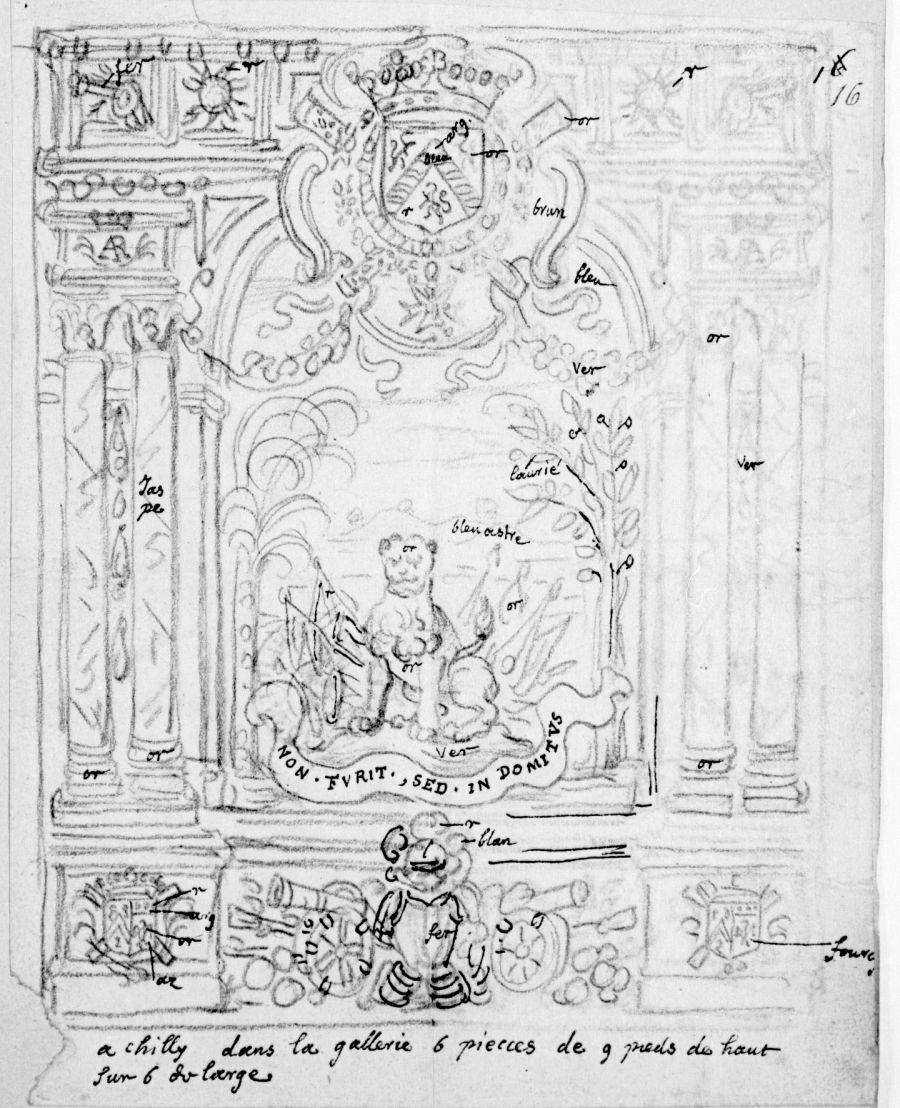 fer
r
r
1
16
arg.
or
or
r
brun
AR
AR
bleu
or
ver
laurié
Jas
pe
ver
bleuastre
or
r
or
or
ver
or
or
or
NON · FVRIT · , SED · IN DOMITVS
r
blan
fer
r
arg
or
az
a chilly dans la gallerie 6 piecces de 9 pieds de haut
sur 6 de large